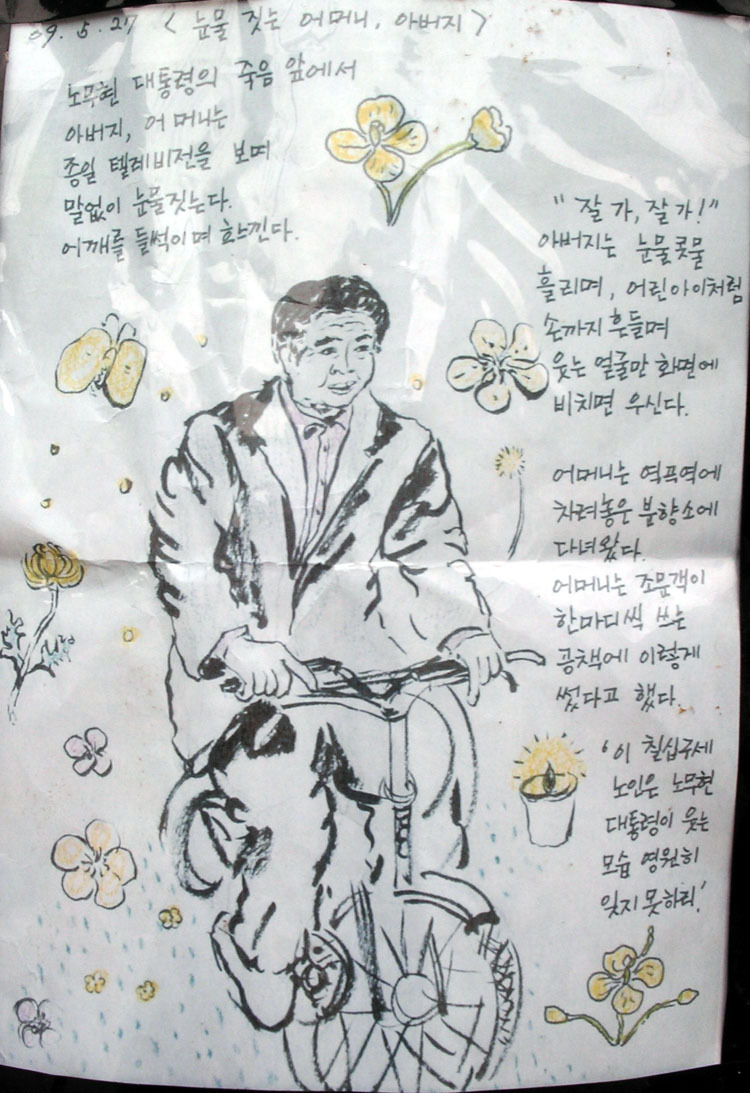 09. 5. 27 < 눈물 짓는 어머니, 아버지 >
노무현 대통령의 죽음 앞에서
아버지, 어머니는
종일 텔레비전을 보며
말없이 눈물짓는다.
어깨를 들썩이며 흐느낀다.
"잘 가, 잘 가!"
아버지는 눈물콧물
흘리며, 어린아이처럼
손까지 흔들며
웃는 얼굴만 화면에
비치면 우신다.
어머니는 역곡역에
차려놓은 분향소에
다녀왔다.
어머니는 조문객이
한마디씩 쓰는
공책에 이렇게
썼다고 했다.
'이 칠십구세
노인은 노무현
대통령이 웃는
모습 영원히
잊지 못하리.'